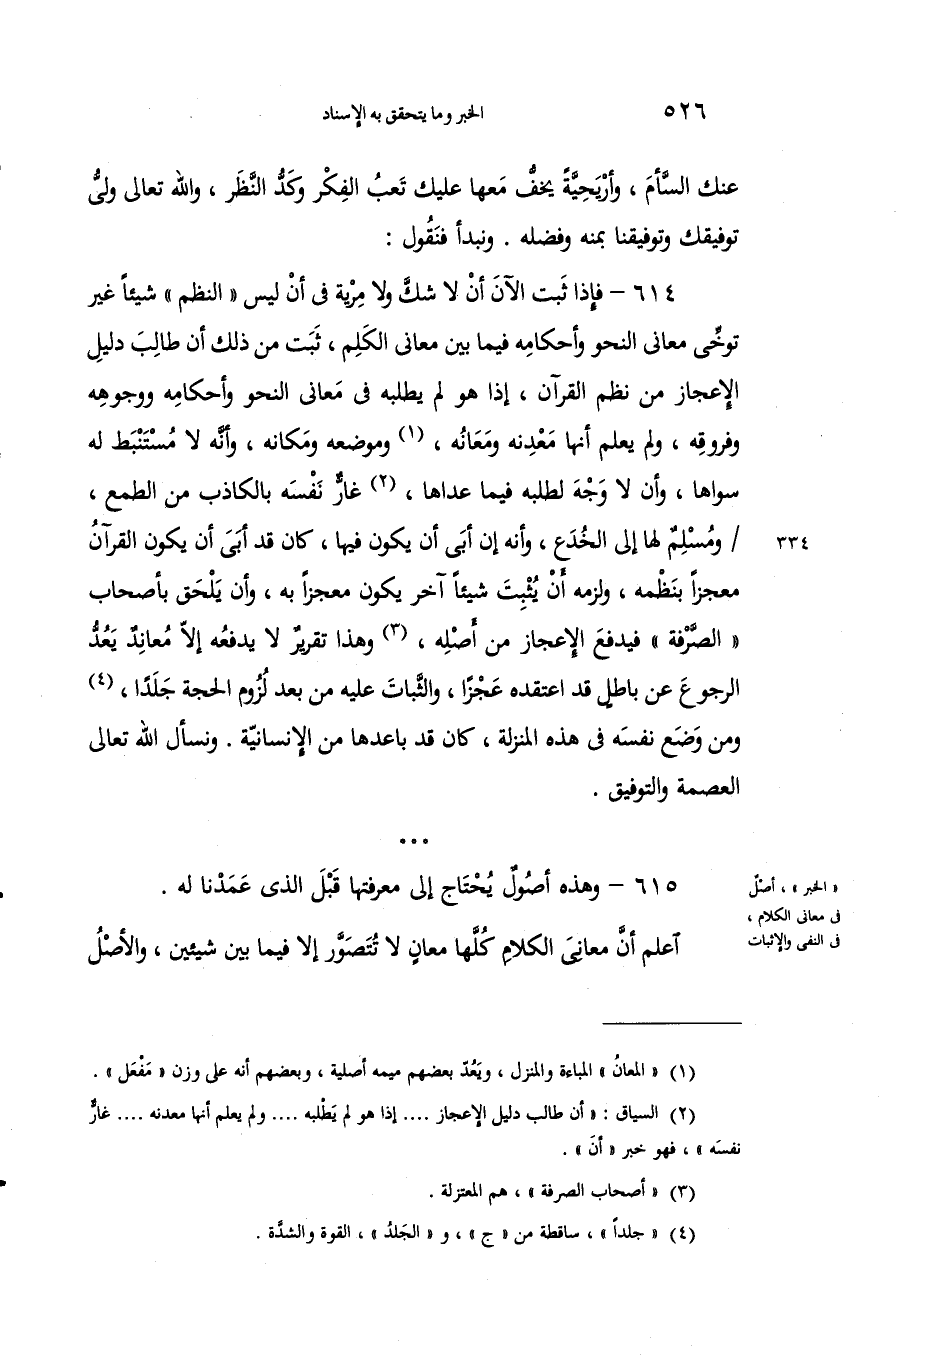 ٥٢٦ الخبر وما يتحقق به الإسناد
عنك السَّأمَ ، وأرْيَحِيَّةً يخفُّ مَعها عليك تَعبُ الفِكْر وكَدُّ النَّظَر ، والله تعالى ولىُّ
توفيقك وتوفيقنا بمنه وفضله . ونبدأ فنَقُول :
٦١٤ – فإِذا ثَبت الآنَ أنْ لا شكَّ ولا مِرْية فى أنْ ليس « النظم » شيئاً غير
توخِّى معانى النحو وأحكامِه فيما بين معانى الكَلِم ، ثَبَت من ذلك أن طالِبَ دليلِ
الإِعجاز من نظم القرآن ، إذا هو لم يطلبه فى مَعانى النحو وأحكامِه ووجوهِه
وفروقِه ، ولم يعلم أنها مَعْدِنه ومَعَانُه ، (١) وموضعه ومَكانه ، وأنَّه لا مُسْتَنْبَط له
سواها ، وأن لا وَجْهَ لطلبه فيما عداها ، (٢) غارٌّ نَفْسَه بالكاذب من الطمع ،
٣٣٤ / ومُسْلِمٌ لها إلى الخُدَع ، وأنه إن أبَى أن يكون فيها ، كان قد أبَىَ أن يكون القرآنُ
معجزاً بنَظْمه ، ولزمه أَنْ يُثْبِتَ شيئاً آخر يكون معجزاً به ، وأن يَلْحَق بأصحاب
« الصَّرْفة » فيدفعَ الإِعجاز من أَصْلِه ، (٣) وهذا تقريرٌ لا يدفعُه إلاّ مُعاندٌ يَعُدُّ
الرجوعَ عن باطلٍ قد اعتقده عَجْزًا ، والثَّباتَ عليه من بعد لُزُوم الحجة جَلَدًا ، (٤)
ومن وَضَع نفسَه فى هذه المنزلة ، كان قد باعدها من الإِنسانيّة . ونسأل الله تعالى
العصمة والتوفيق .
• • •
٦١٥ – وهذه أصُولٌ يُحْتَاج إلى معرفتها قَبْلَ الذى عَمَدْنا له .
« الخبر » ، أصْلٌ
فى معانى الكلام ،
فى النفى والإِثبات
آعلم أنَّ معانِىَ الكلامِ كُلَّها معانٍ لا تُتَصَوَّر إلا فيما بين شيئين ، والأصْلُ
(١) « المعانُ » المباءة والمنزل ، ويَعُدّ بعضهم ميمه أصلية ، وبعضهم أنه على وزن « مَفْعَل » .
(٢) السياق : « أن طالب دليل الإِعجاز .... إذا هو لم يَطْلبه .... ولم يعلم أنها معدنه .... غارٌّ
نفسَه » ، فهو خبر « أنَ » .
(٣) « أصحاب الصرفة » ، هم المعتزلة .
(٤) « جلداً » ، ساقطة من « ج » ، و « الجَلدُ » ، القوة والشدَّة .